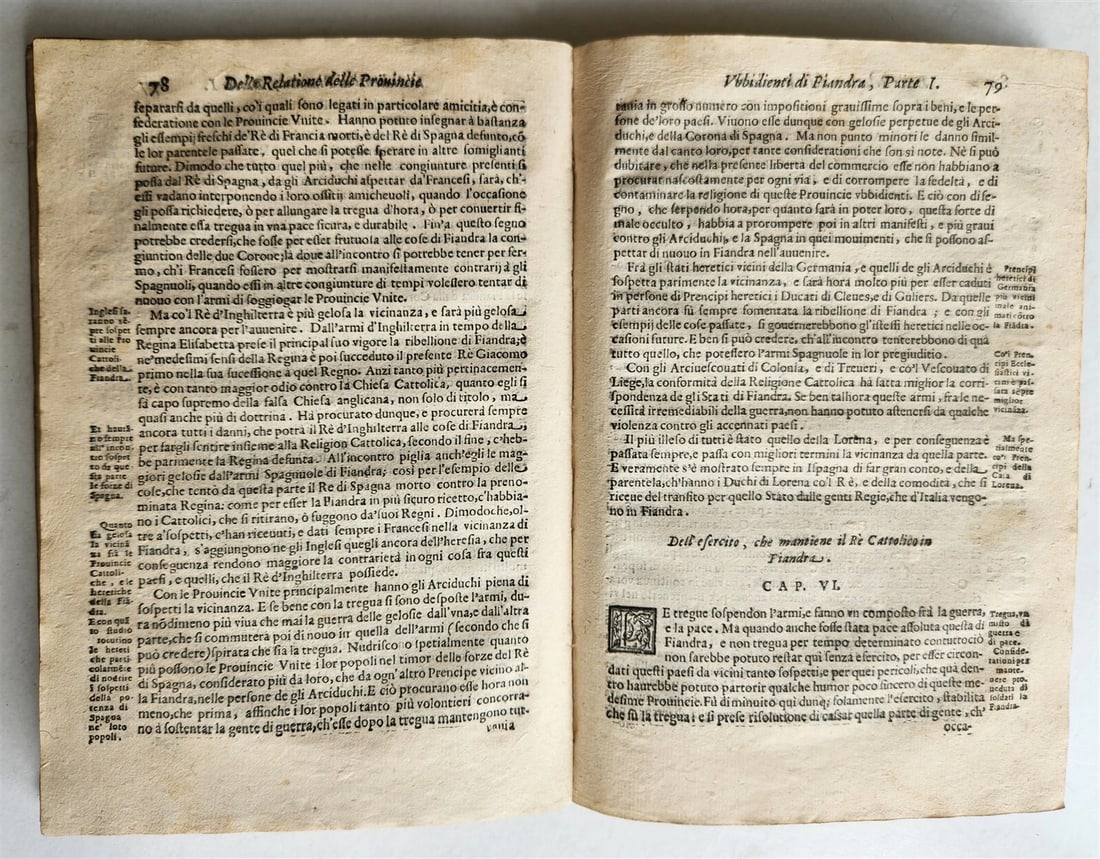 78 Della Relatione delle Prouincie
separarsi da quelli, co'i quali sono legati in particolare amicitia, è con-
federatione con le Prouincie Vnite. Hanno potuto insegnar à bastanza
gli essempij freschi de'Rè di Francia morti, è del Rè di Spagna defunto, cō
le lor parentele passate, quel che si potesse sperare in altre somiglianti
future. Dimodo che tutto quel più, che nelle congiunture presenti si
possa dal Rè di Spagna, da gli Arciduchi aspettar da'Francesi, sarà, ch'-
essi vadano interponendo i loro offitij amicheuoli, quando l'occasione
gli possa richiedere, ò per allungare la tregua d'hora, ò per conuertir fi-
nalmente essa tregua in vna pace sicura, e durabile. Fin'a questo segno
potrebbe credersi, che fosse per esser frutuosa alle cose di Fiandra la con-
giuntion delle due Corone; là doue all'incontro si potrebbe tener per fer-
mo, ch'i Francesi fossero per mostrarsi manifestamente contrarij à gli
Spagnuoli, quando essi in altre congiunture di tempi volessero tentar di
nuouo con l'armi di soggiogar le Prouincie Vnite.
Ma co'l Rè d'Inghilterra è più gelosa la vicinanza, e sarà più gelosa
sempre ancora per l'auuenire. Dall'armi d'Inghilterra in tempo della
Regina Elisabetta prese il principal suo vigore la ribellione di Fiandra; è
ne'medesimi sensi della Regina è poi succeduto il presente Rè Giacomo
primo nella sua successione a quel Regno. Anzi tanto più pertinacemen-
te, è con tanto maggior odio contro la Chiesa Cattolica, quanto egli si
fà capo supremo della falsa Chiesa anglicana, non solo di titolo, ma
quasi anche più di dottrina. Hà procurato dunque, e procurerà sempre
ancora tutti i danni, che potrà il Rè d'Inghilterra alle cose di Fiandra,
per fargli sentire insieme alla Religion Cattolica, secondo il fine, c'heb-
be parimente la Regina defunta. All'incontro piglia anch'egli le mag-
giori gelosie dall'armi Spagnuole di Fiandra; così per l'esempio delle
cose, che tentò da questa parte il Re di Spagna morto contro la preno-
minata Regina: come per esser la Fiandra in più sicuro ricetto, c'habbia-
no i Cattolici, che si ritirano, ò fuggono da'suoi Regni. Dimodoche, ol-
tre a'sospetti, c'han riceuuti, e dati sempre i Francesi nella vicinanza di
Fiandra, s'aggiungono ne gli Inglesi quegli ancora dell'heresia, che per
conseguenza rendono maggiore la contrarietà in ogni cosa frà questi
paesi, e quelli, che il Rè d'Inghilterra possiede.
Con le Prouincie Vnite principalmente hanno gli Arciduchi piena di
sospetti la vicinanza. E se bene con la tregua si sono desposte l'armi, du-
ra nōdimeno più viua che mai la guerra delle gelosie dall'vna, e dall'altra
parte, che si commuterà poi di nouo in quella dell'armi (secondo che si
può credere) spirata che sia la tregua. Nudriscono spetialmente quanto
più possono le Prouincie Vnite i lor popoli nel timor delle forze del Rè
di Spagna, considerato più da loro, che da ogn'altro Prencipe vicino al-
la Fiandra, nelle persone de gli Arciduchi. E ciò procurano esse hora non
meno, che prima, affinche i lor popoli tanto più volontieri concorra-
no à sostentar la gente di guerra, ch'esse dopo la tregua mantengono tut-
tauia
Inglesi sa-
ranno sē-
pre sospet
ti alle Pro
uincie
Cattoli-
che della
Fiandra.
Et haurā-
no sempre
all'incon-
tro sospet
to da que-
sta parte
le forze di
Spagna.
Quanto
sia gelosa
la vicinā
za frà le
Prouincie
Cattoli-
che, e le
heretiche
della Fiā-
dra.
E con quā
to studio
procurino
le hereti
che parti
colarmē-
te di nodrire
i sospetti
della po-
tenza di
Spagna
ne' loro
popoli.
Vbbidienti di Fiandra, Parte I. 79
tauia in grosso numero con impositioni grauissime sopra i beni, e le per-
sone de'loro paesi. Viuono esse dunque con gelosie perpetue de gli Arci-
duchi, e della Corona di Spagna. Ma non punto minori le danno simil-
mente dal canto loro, per tante considerationi che son sì note. Nè si può
dubitare, che nella presente liberta del commercio esse non habbiano a
procurar nascostamente per ogni via, e di corrompere la fedeltà, e di
contaminare la religione di queste Prouincie vbbidienti. E ciò con dise-
gno, che serpendo hora, per quanto sarà in poter loro, questa sorte di
male occulto, habbia a prorompere poi in altri manifesti, e più graui
contro gli Arciduchi, e la Spagna in quei mouimenti, che si possono as-
pettar di nuouo in Fiandra nell'auuenire.
Frà gli stati heretici vicini della Germania, e quelli de gli Arciduchi è
sospetta parimente la vicinanza, e sarà hora molto più per esser caduti
in persone di Prencipi heretici i Ducati di Cleues, e di Guliers. Da quelle
parti ancora sù sempre fomentata la ribellione di Fiandra; e con gli
esempij delle cose passate, si gouernerebbono gl'istessi heretici nelle oc-
casioni future. E ben si può credere, ch'all'incontro tenterebbono di quà
tutto quello, che potessero l'armi Spagnuole in lor pregiuditio.
Con gli Arciuescouati di Colonia, e di Treueri, e co'l Vescouato di
Liege, la conformità della Religione Cattolica hà fatta miglior la corri-
spondenza de gli Stati di Fiandra. Se ben talhora queste armi, frà le ne-
cessità irremediabili della guerra, non hanno potuto astenersi da qualche
violenza contro gli accennati paesi.
Il più illeso di tutti è stato quello della Lorena, e per conseguenza è
passata sempre, e passa con migliori termini la vicinanza da quella parte.
E veramente s'è mostrato sempre in Ispagna di far gran conto, e della
parentela, ch'hanno i Duchi di Lorena co'l Rè, e della comodità, che si
riceue del transito per quello Stato dalle genti Regie, che d'Italia vengo-
no in Fiandra.
Dell'esercito, che mantiene il Rè Cattolico in
Fiandra.
CAP. VI.
LE tregue sospendon l'armi, e fanno vn composto frà la guerra,
e la pace. Ma quando anche fosse stata pace assoluta questa di
Fiandra, e non tregua per tempo determinato contuttociò
non sarebbe potuto restar qui senza esercito, per esser circon-
dati questi paesi da vicini tanto sospetti, e per quei pericoli, che quà den-
tro haurebbe potuto partorir qualche humor poco sincero di queste me-
desime Prouincie. Fù di minuito qui dunq; solamente l'esercito, stabilita
che fù la tregua: e si prese risolutione di cassar quella parte di gente, ch'
occa-
Prencipi
heretici di
Germania
più vicini
male ani-
mati cōtro
la Fiādra.
Co'i Pren-
cipi Eccle-
siastici vi-
cini è pas-
sata sēpre
miglior
vicinanza.
Ma spe-
tialmente
co'i Pren-
cipi della
Casa di
Lorena.
Tregua, vn
misto di
guerra e
di pace.
Conside-
rationi per
mante-
nere pro-
ueduta di
soldati la
Fiandra.